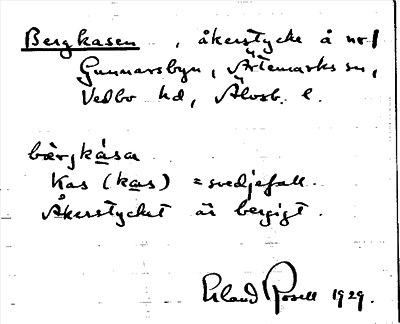 Bergkasen , åkerstycke å nr 1
Gunnarsbyn, Ärtemarks sn,
Vedbo hd, Älvsb. l.
bærjkåsa
Kas (kas) = svedjefall.
Åkerstycket är bergigt.
Erland Rosell 1929.